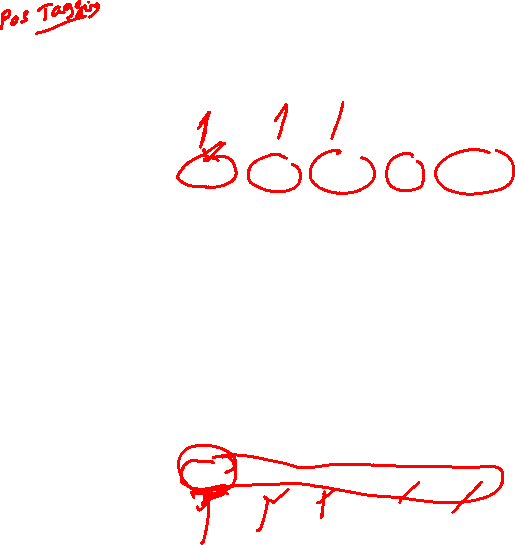 Pos Tagging